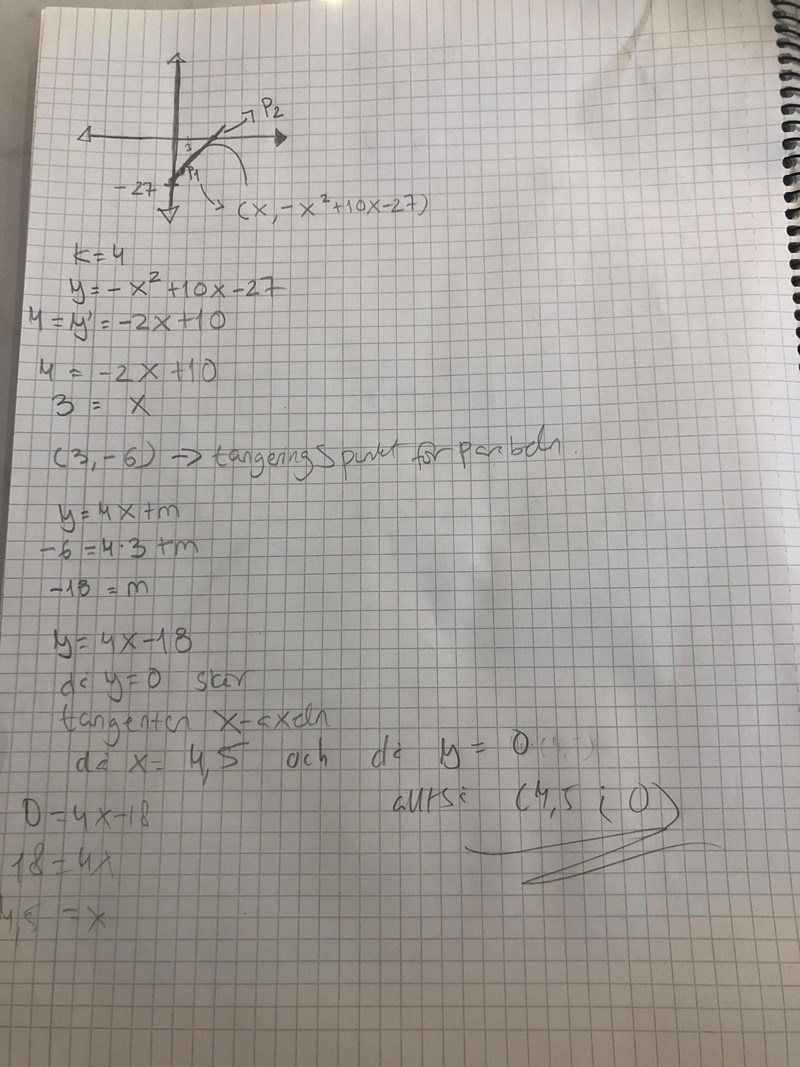 P2
3
P1
-27
(x, -x²+10x-27)
k=4
y=-x²+10x-27
4=y'=-2x+10
4 = -2x+10
3 = x
(3,-6) → tangeringspunkt för parabeln.
y=4x+m
-6=4·3+m
-18 = m
y=4x-18
då y=0 skär
tangenten x-axeln
då x= 4,5 och då y = 0
alltså (4,5 ; 0)
0=4x-18
18=4x
4,5 =x